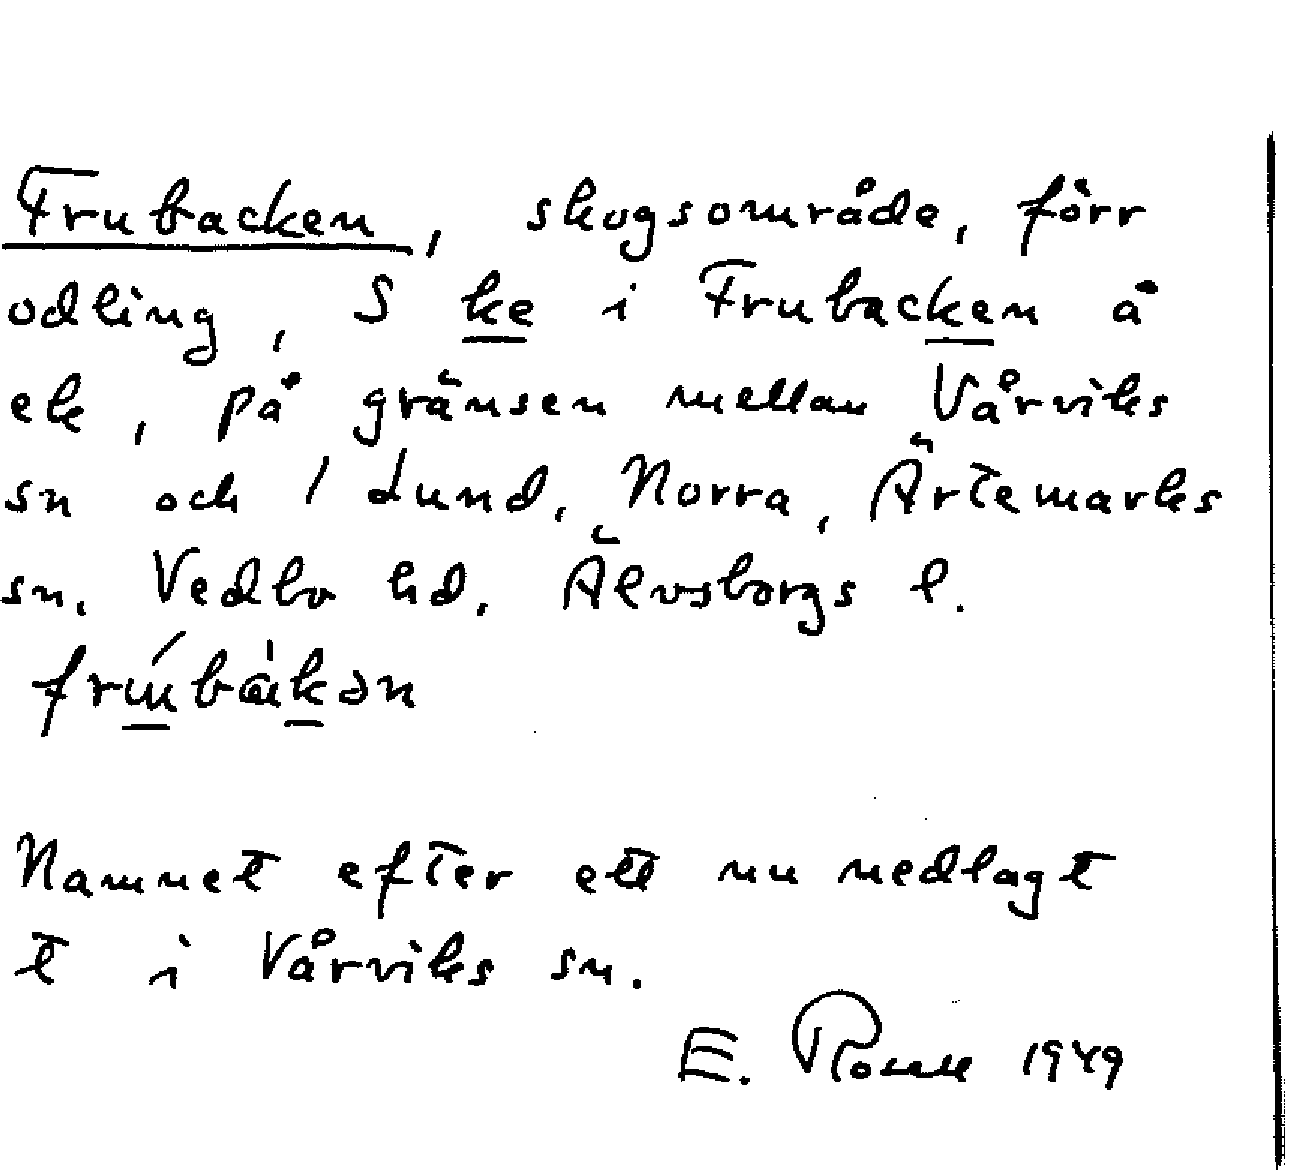 Frubacken, skogsområde, förr
odling, S ke i Frubacken å
ek, på gränsen mellan Vårviks
sn och 1 Lund, Norra, Ärtemarks
sn. Vedbo hd. Älvsborgs l.
Namnet efter ett nu nedlagt
t i Vårviks sn.
E. 1949